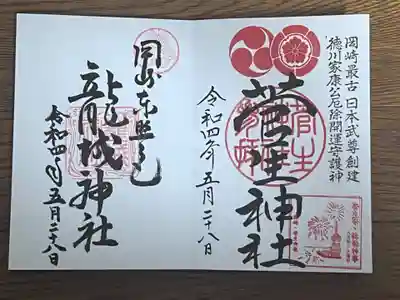 岡崎最古 日本武尊創建
徳川家康公厄除開運守護神
菅生神社
菅生
令和四年五月二十八日
龍城神社
令和四年五月二十八日